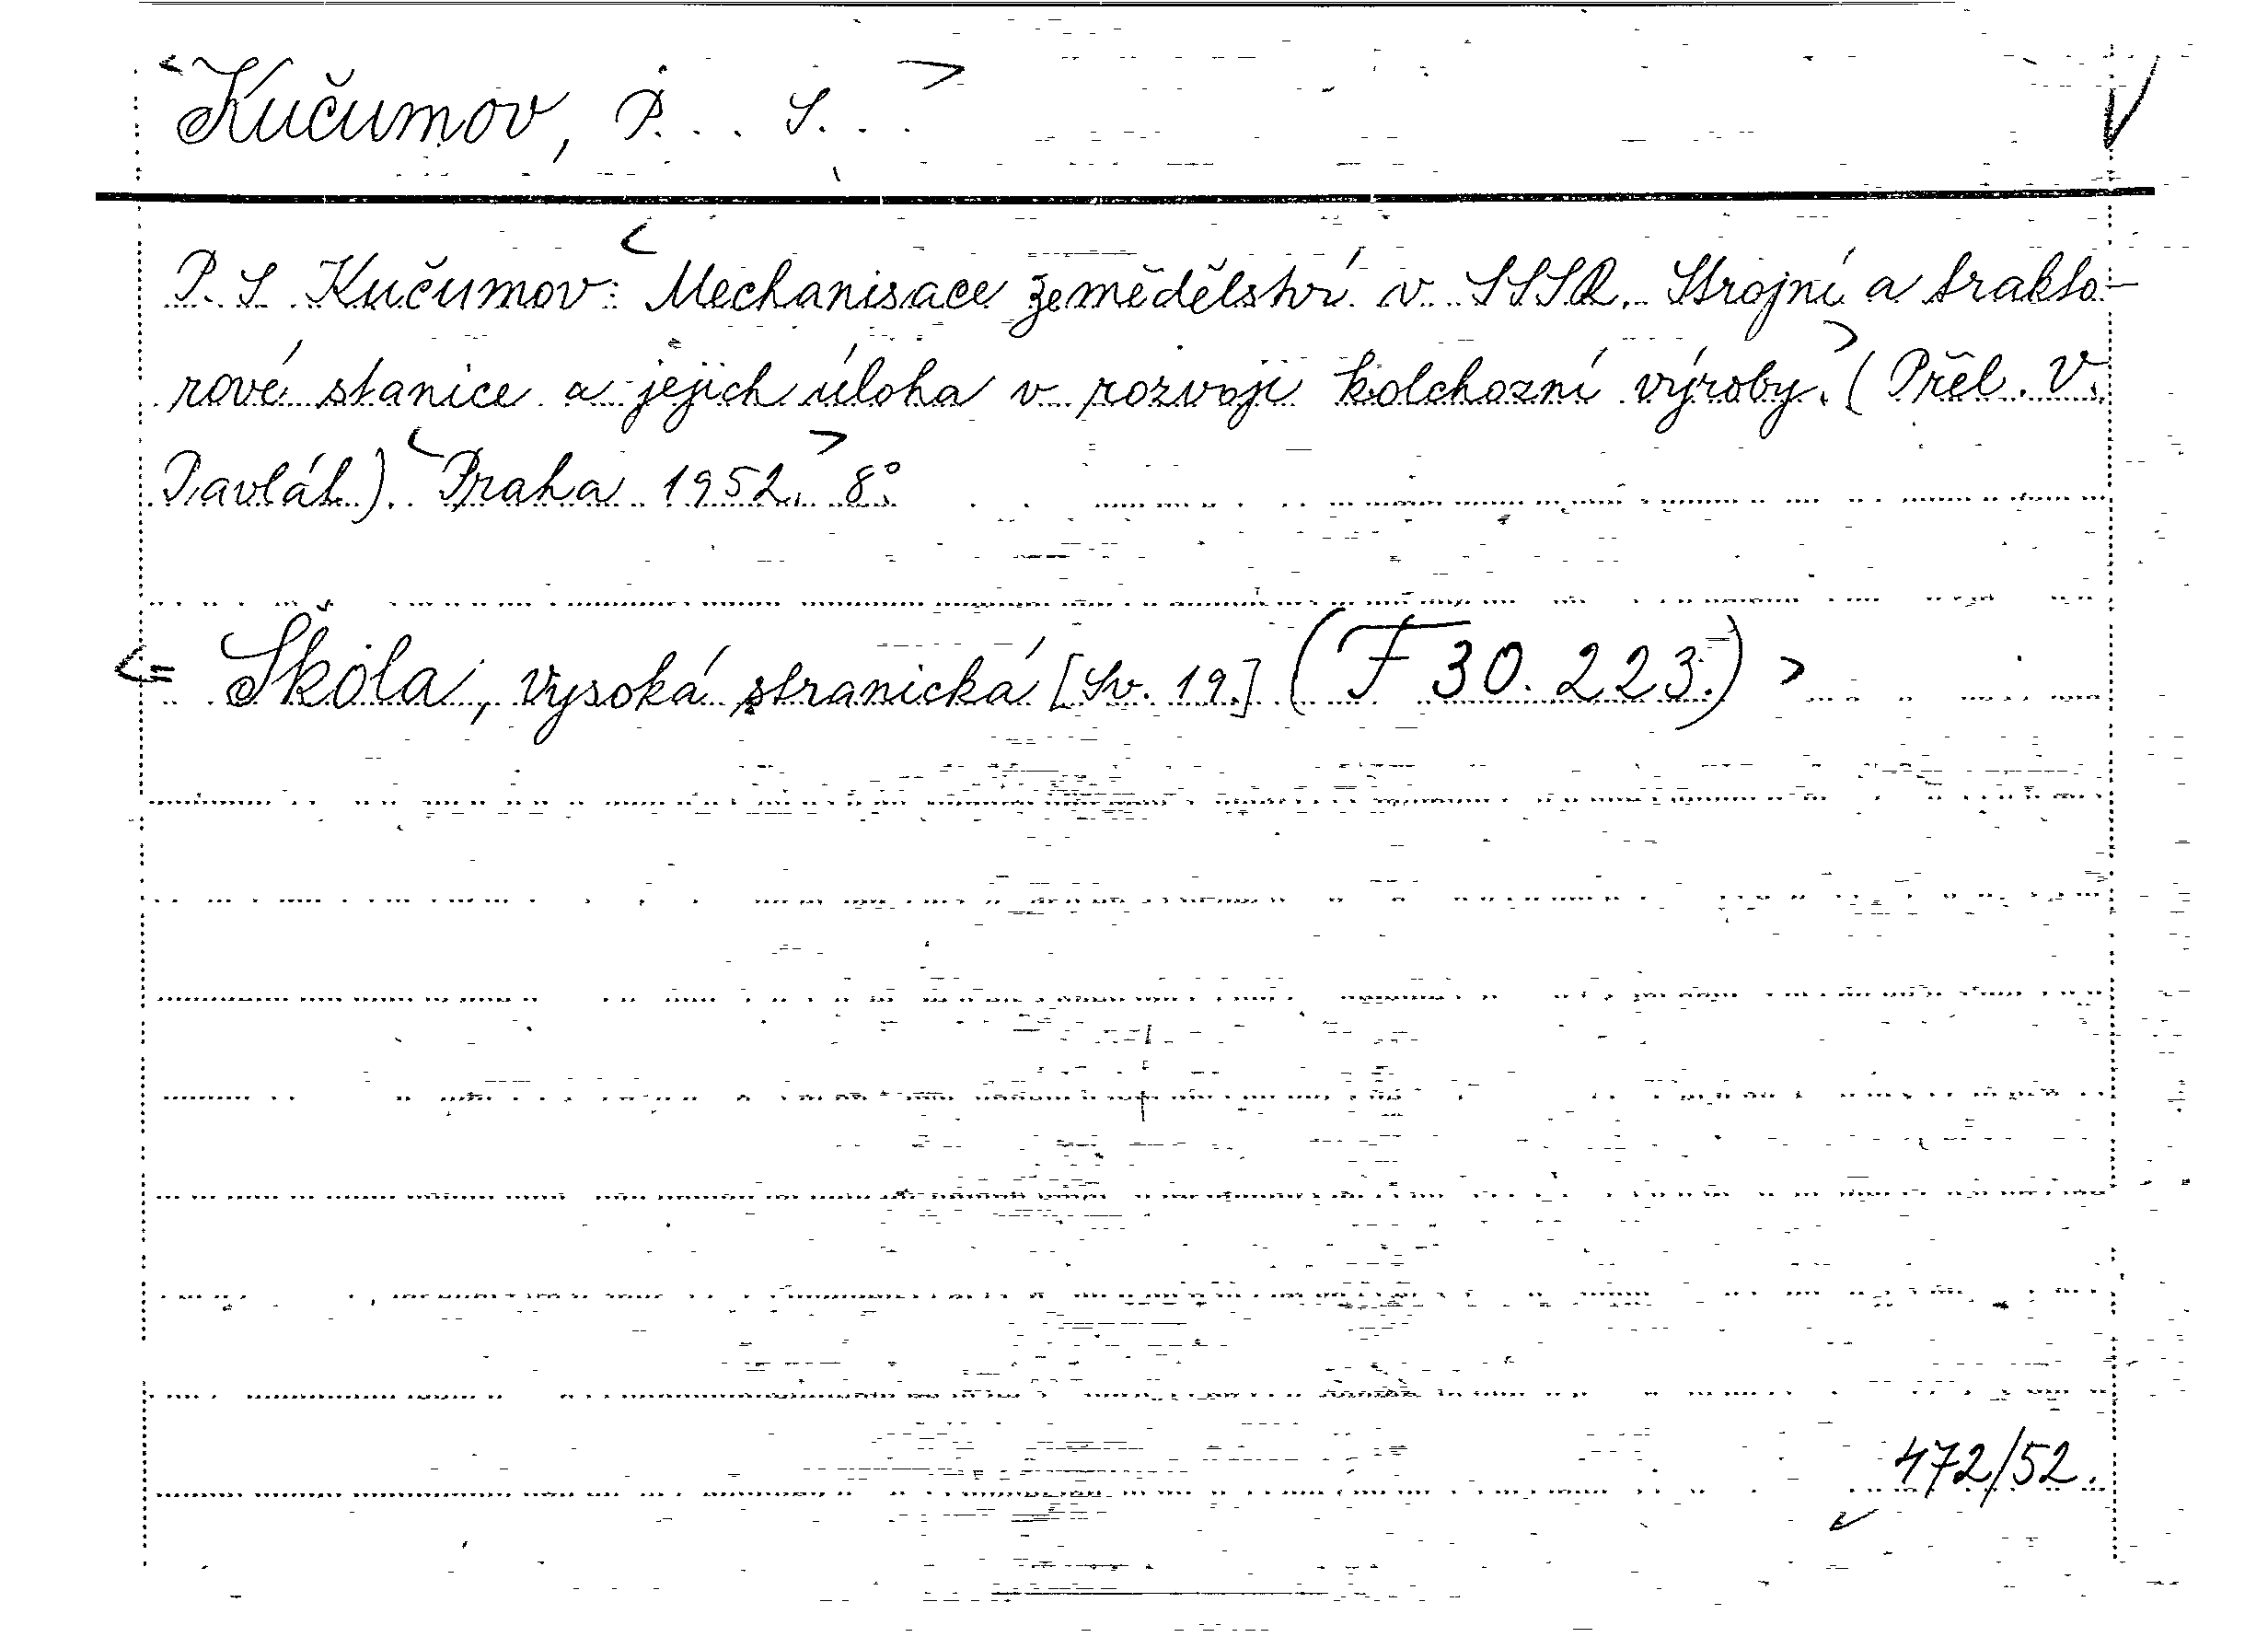 Kučumov, P... S...
P. S. Kučumov: Mechanisace zemědělství v SSSR. Strojní a trakto-
rové stanice a jejich úloha v rozvoji kolchozní výroby. (Přel. V.
Pavlát). Praha 1952. 8°.
= Škola, vysoká stranická [Sv. 19.] (F 30.223.)
472/52.